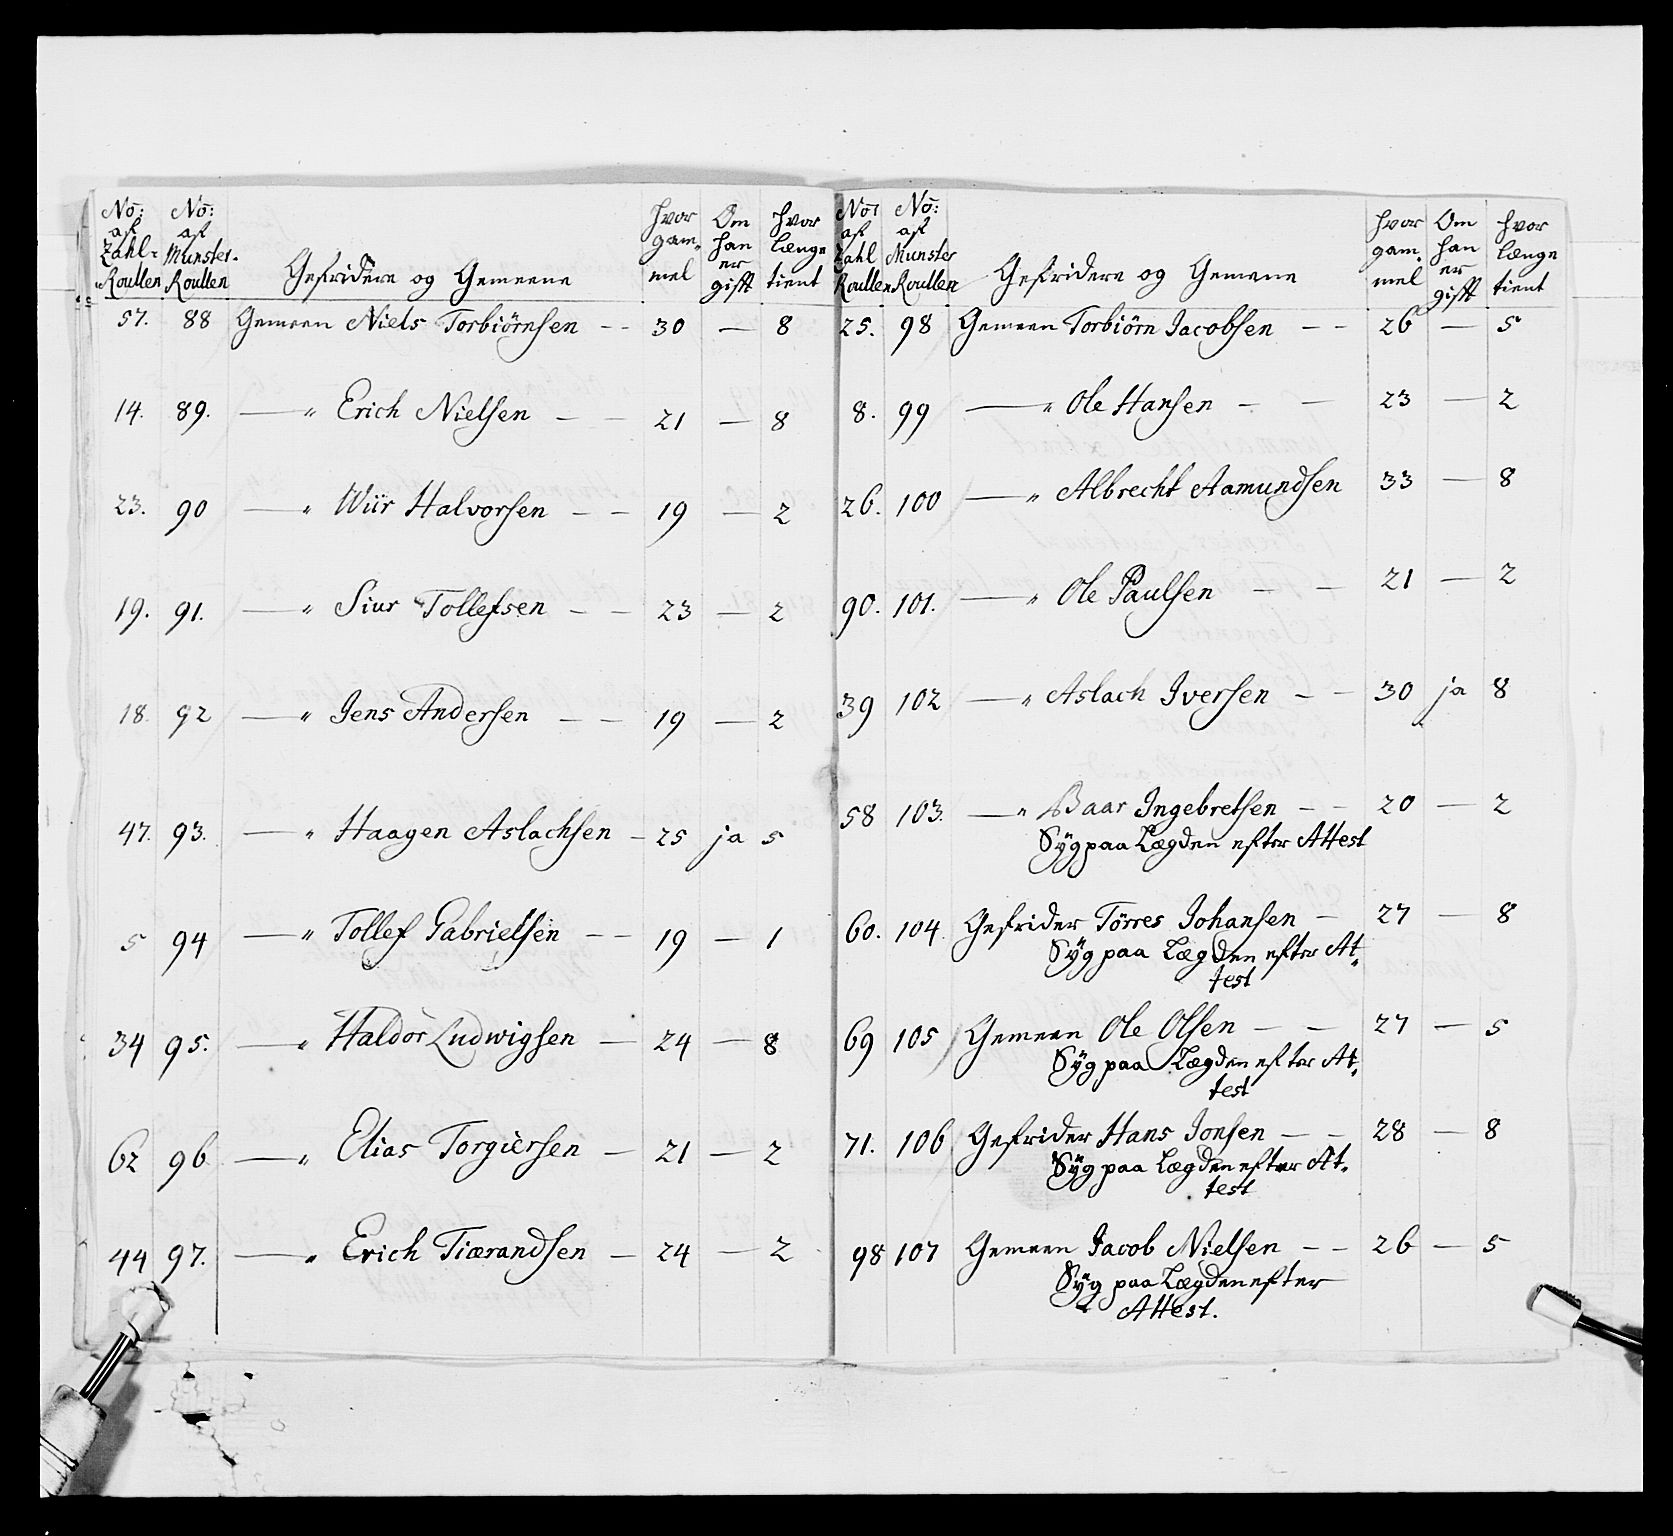 No: No: hvor Om hvor
af af gam- han længe
Zahl- Munster- er
Roullen Roullen Gefridere og Gemeene mel gift tient
57. 88 Gemeen Niels Torbiörnsen - - 30 — 8
14. 89. —— " Erich Nielsen — — 21 — 8
23. 90 —— " Wiir Halvorsen - - 19 — 2
19. 91. —— " Siur Tollefsen - - 23 — 2
18. 92 —— " Jens Andersen - - 19 — 2
47. 93. —— " Haagen Aslachsen - 25 ja 5
5 94 —— " Tollef Gabrielsen - - 19 — 1
34 95. —— " Haldor Ludwigsen — 24 — 8
62 96 —— " Elias Torgiersen — 21 — 2
44 97. —— " Erich Tiærandsen — 24 — 2
No: No: hvor Om hvor
af af gam- han længe
Zahl Munster er
Roullen Roullen Gefridere og Gemene mel gift tient
25. 98 Gemeen Torbiörn Jacobsen - - 26 — 5
8. 99 —— " Ole Hansen - - 23 — 2
26. 100 —— " Albrecht Aamundsen 33 — 8
90. 101. —— " Ole Paulsen - - 21 — 2
39 102 —— " Aslach Iversen - - 30 ja 8
58 103. —— " Baar Ingebretsen - - 20 — 2
Syg paa Lægden efter Attest
60. 104. Gefrider Törres Johansen — 27 — 8
Syg paa Lægden efter At-
test
69 105 Gemeen Ole Olsen - - 27 — 5
Syg paa Lægden efter At-
test
71. 106 Gefrider Hans Jonsen - - 28 — 8
Syg paa Lægden efter At-
test
98 107 Gemeen Jacob Nielsen - - 26 — 5
Syg paa Lægden efter
Attest.